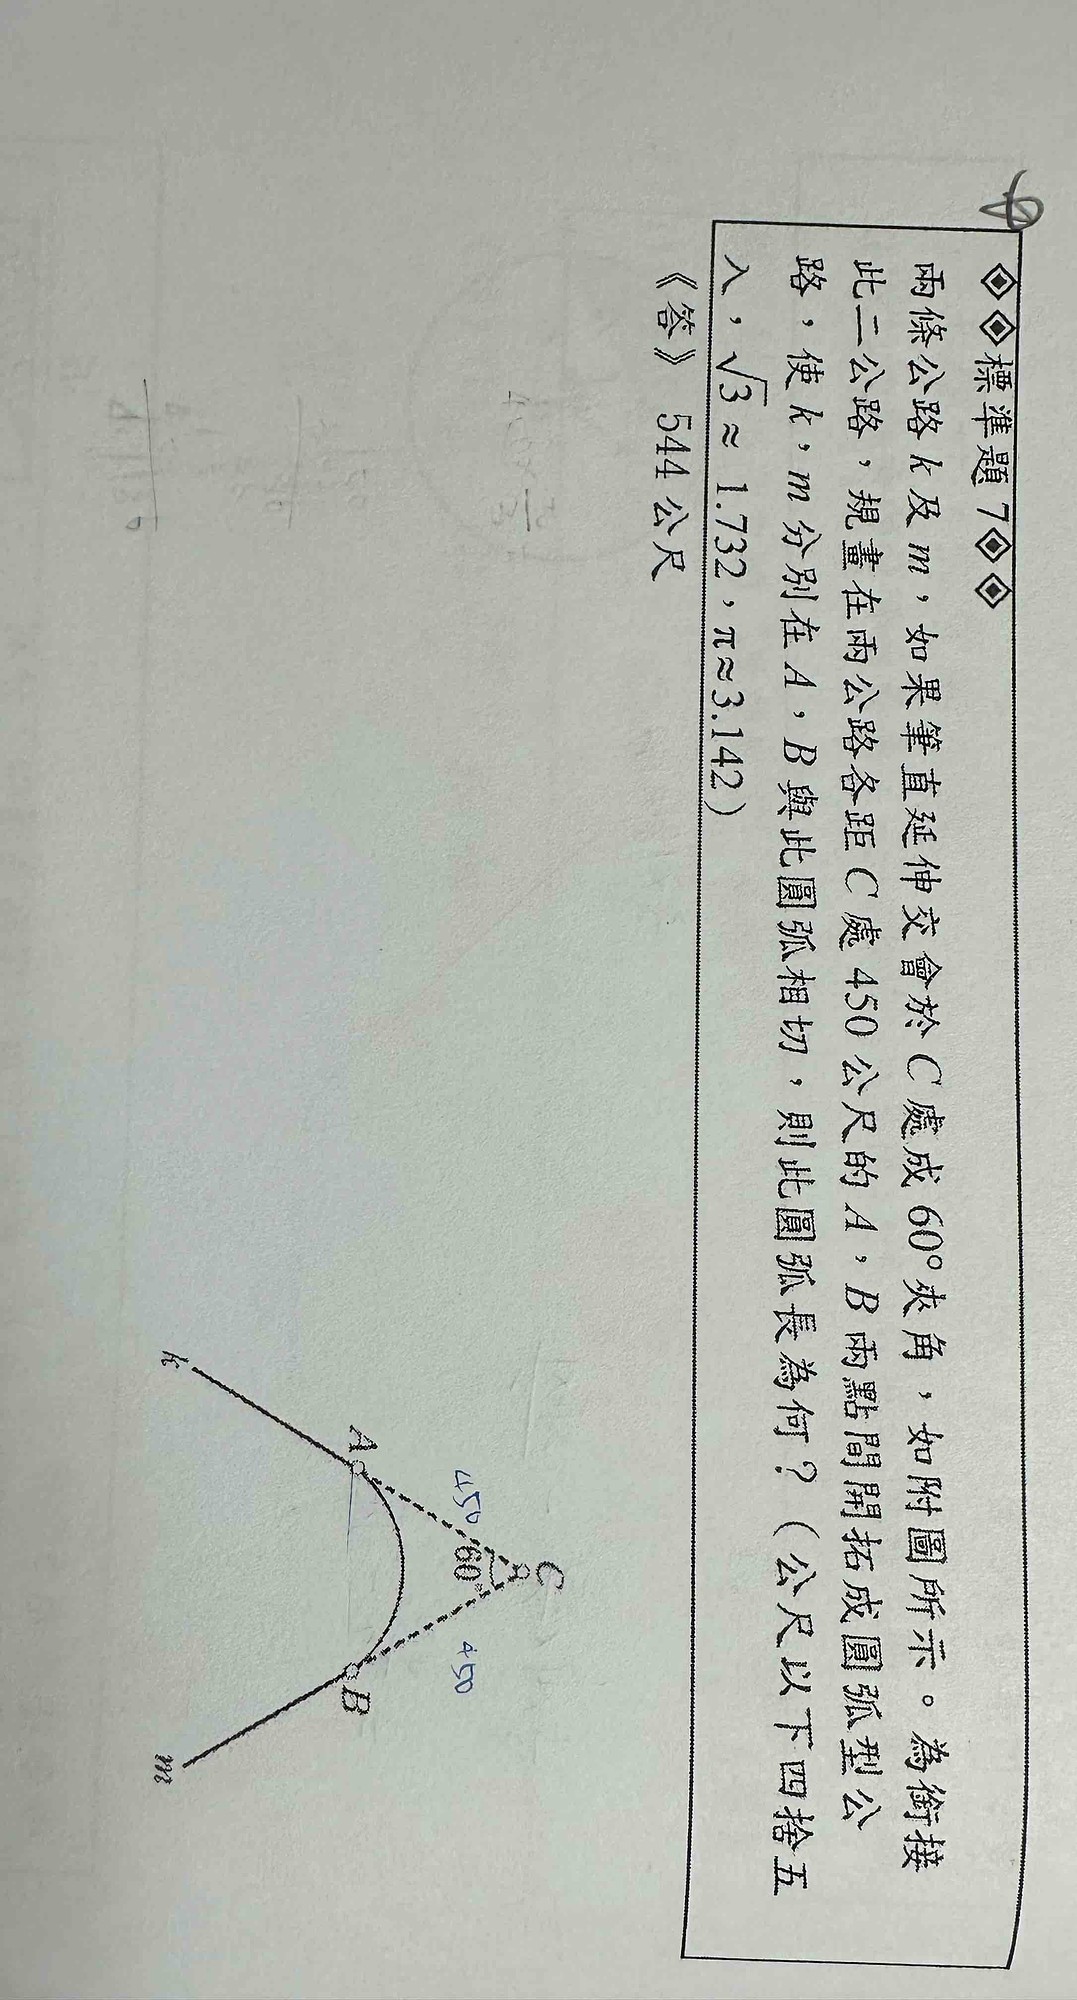 ◈◈標準題 7◈◈
兩條公路 k 及 m,如果筆直延伸交會於 C 處成 60°夾角,如附圖所示。為銜接
此二公路,規畫在兩公路各距 C 處 450 公尺的 A,B 兩點間開拓成圓弧型公
路,使 k,m 分別在 A,B 與此圓弧相切,則此圓弧長為何?(公尺以下四捨五
入,√3 ≈ 1.732,π≈3.142)
《答》 544 公尺
C
60°
450
450
A
B
k
m